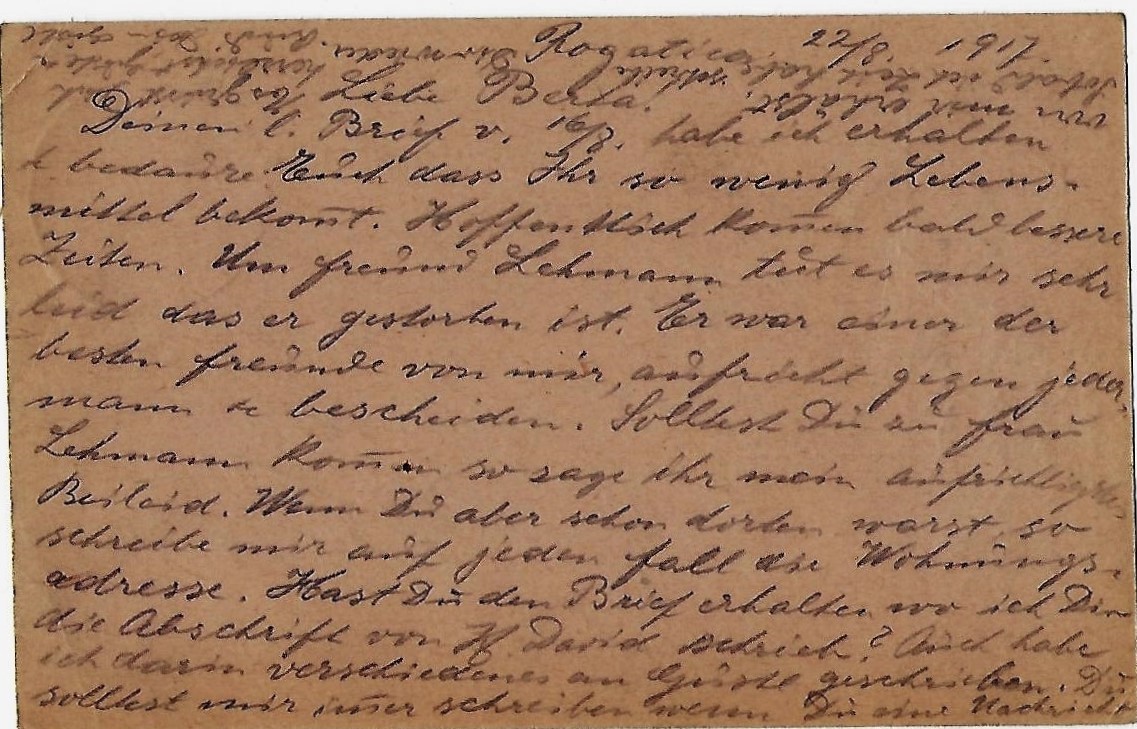 Rogatica 22/8. 1917.
Liebe Berta!
Deinen l. Brief v. 16/8. habe ich erhalten
& bedaure Euch dass Ihr so wenig Lebens-
mittel bekom̅t. Hoffentlich kom̅en bald bessere
Zeiten. Um freund Lehmann tut es mir sehr
leid das er gestorben ist. Er war einer der
besten freunde von mir, aufricht gegen jeder-
mann & bescheiden. Solltest Du zu frau
Lehmann kom̅en so sage ihr mein aufrichtigstes
Beileid. Wenn Du aber schon dorten warst, so
schreibe mir auf jeden fall die Wohnungs-
adresse. Hast Du den Brief erhalten wo ich Dir
die Abschrift von H. David schrieb? Auch habe
ich darin verschiedenes an Gustl geschrieben. Du
solltest mir im̅er schreiben wenn Du eine Nachricht
von mir erhälst.
Sobald ich Zeit habe schreibe Dir wieder.